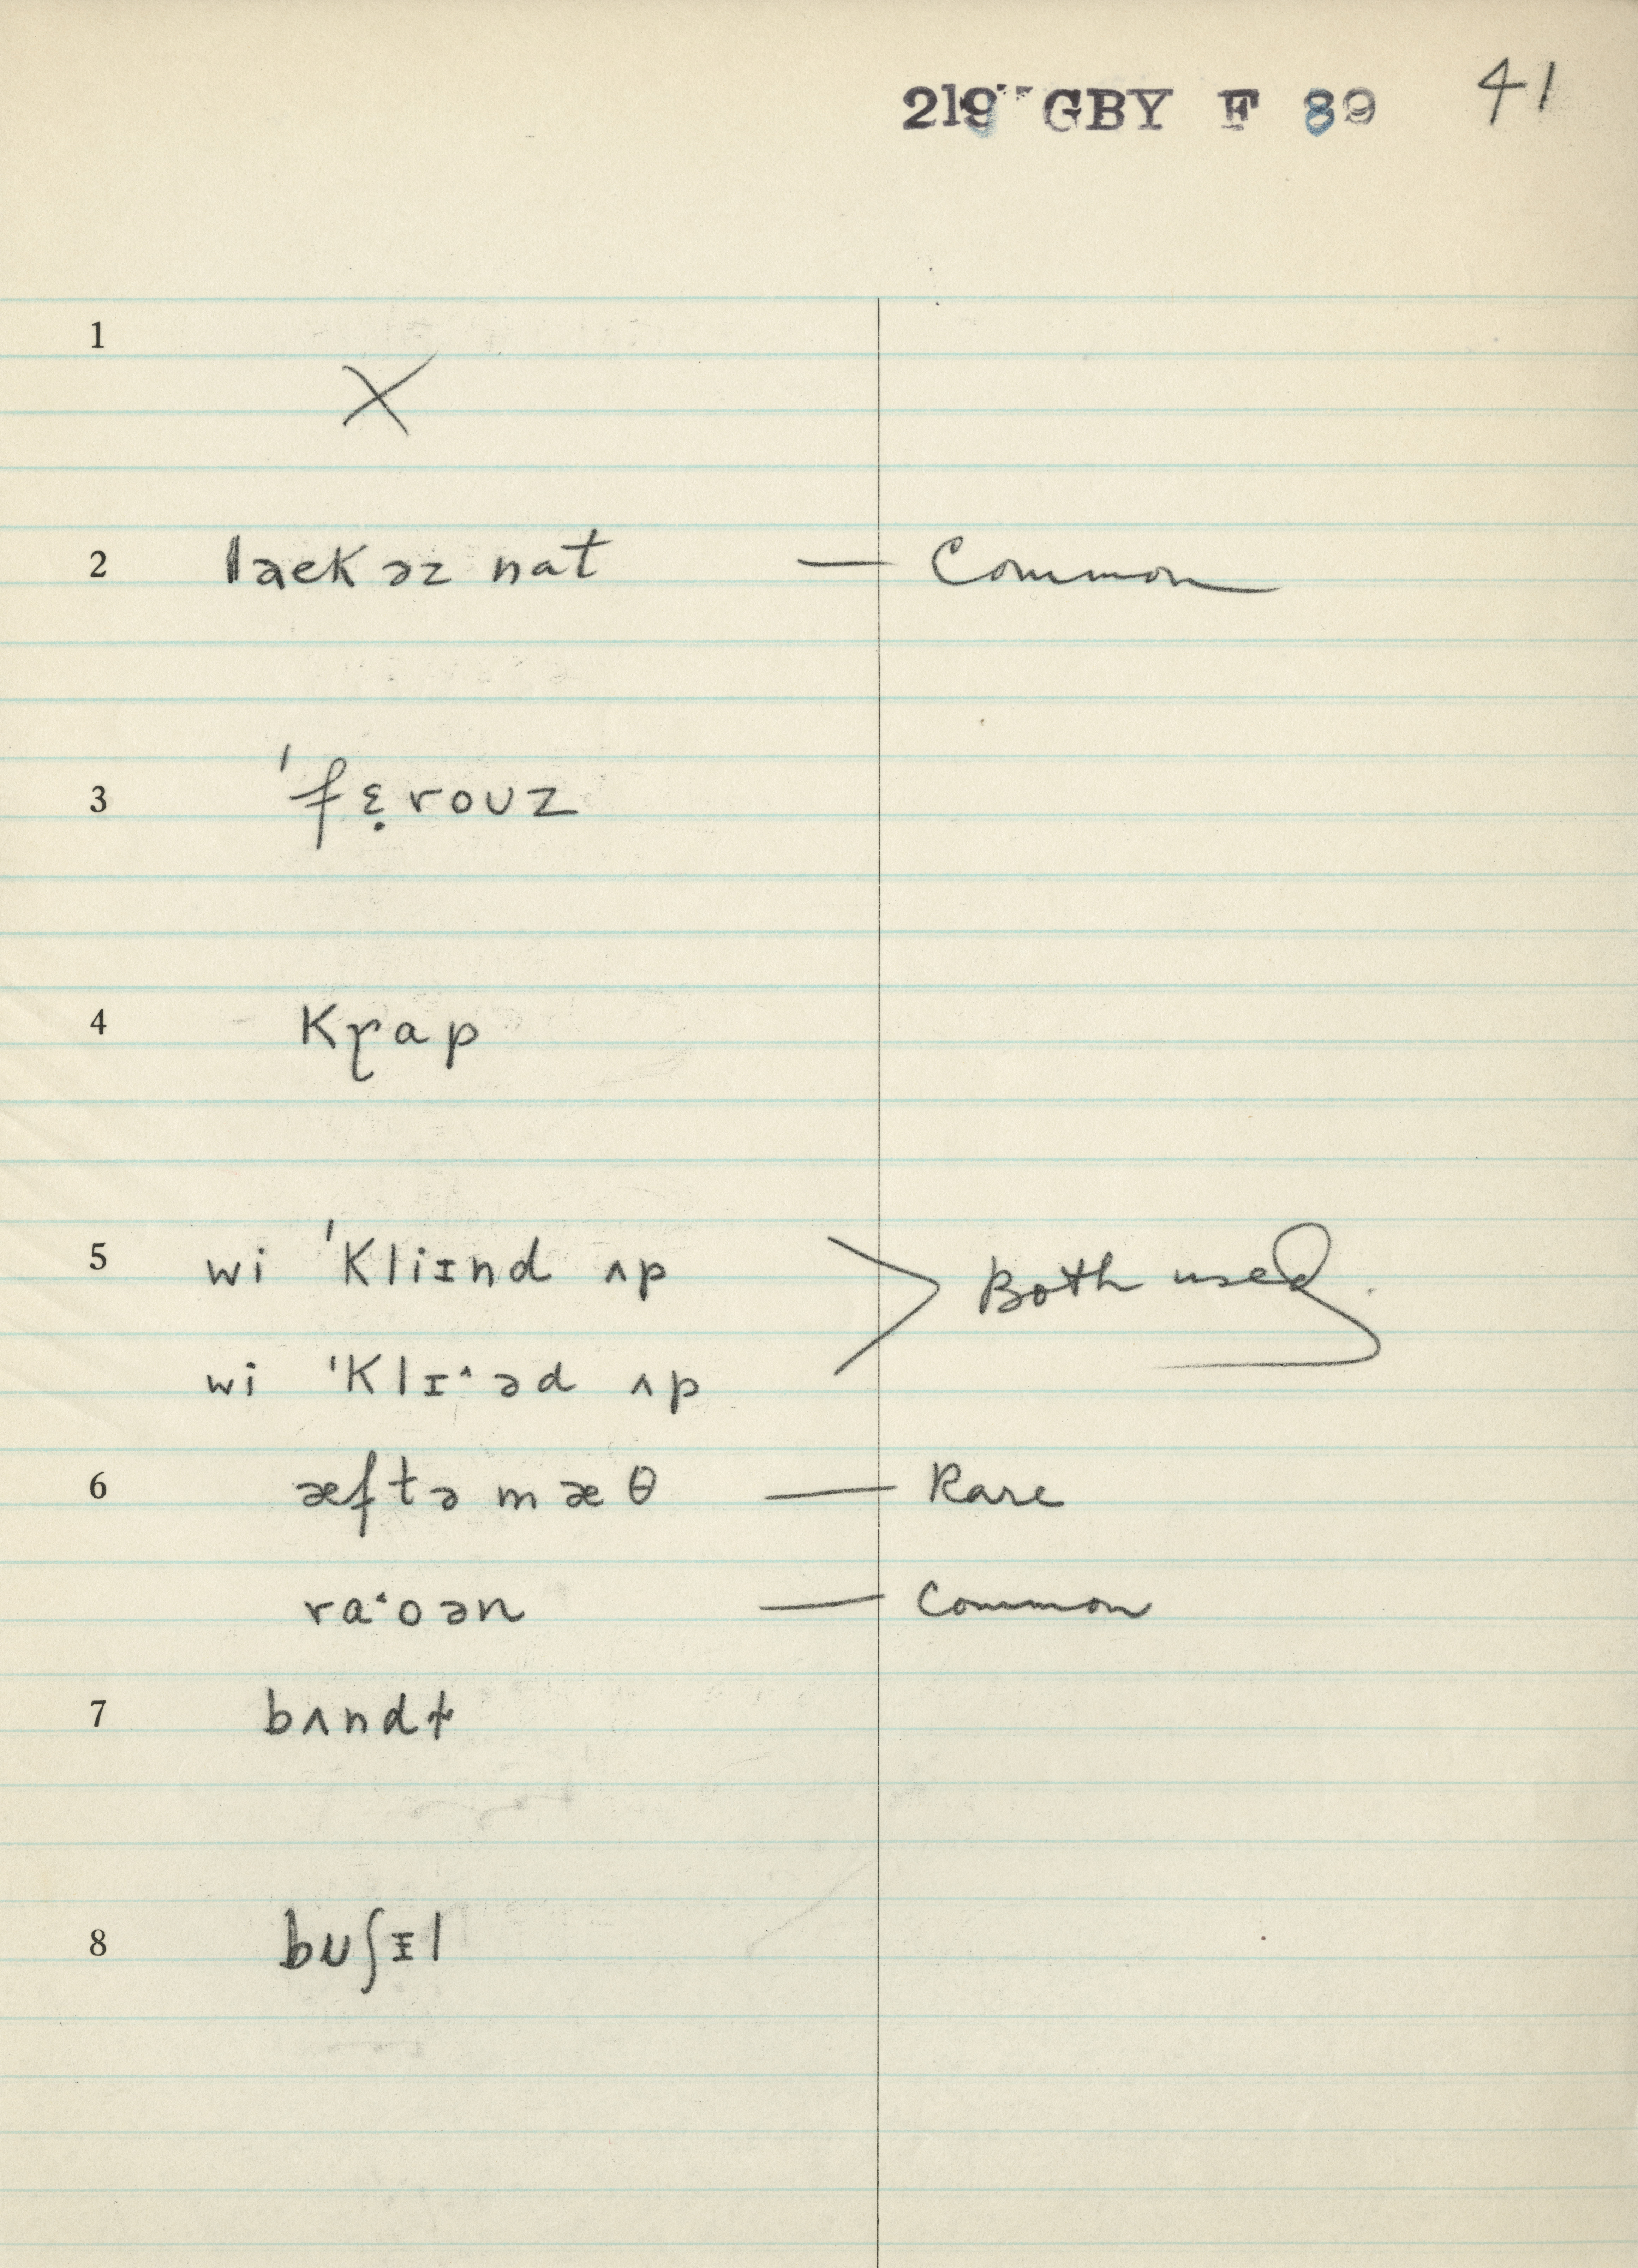 219 GBY F 89 41
1 X
2 lækəz nat — Common
3 ˈfɛ̣rouz
4 Kɽap
5 wi ˈKliɪnd ʌp > Both used.
wi ˈKlɪˑəd ʌp
6 æftə mæθ — Rare
raˑoən — Common
7 bʌndɫ
8 buʃɪl